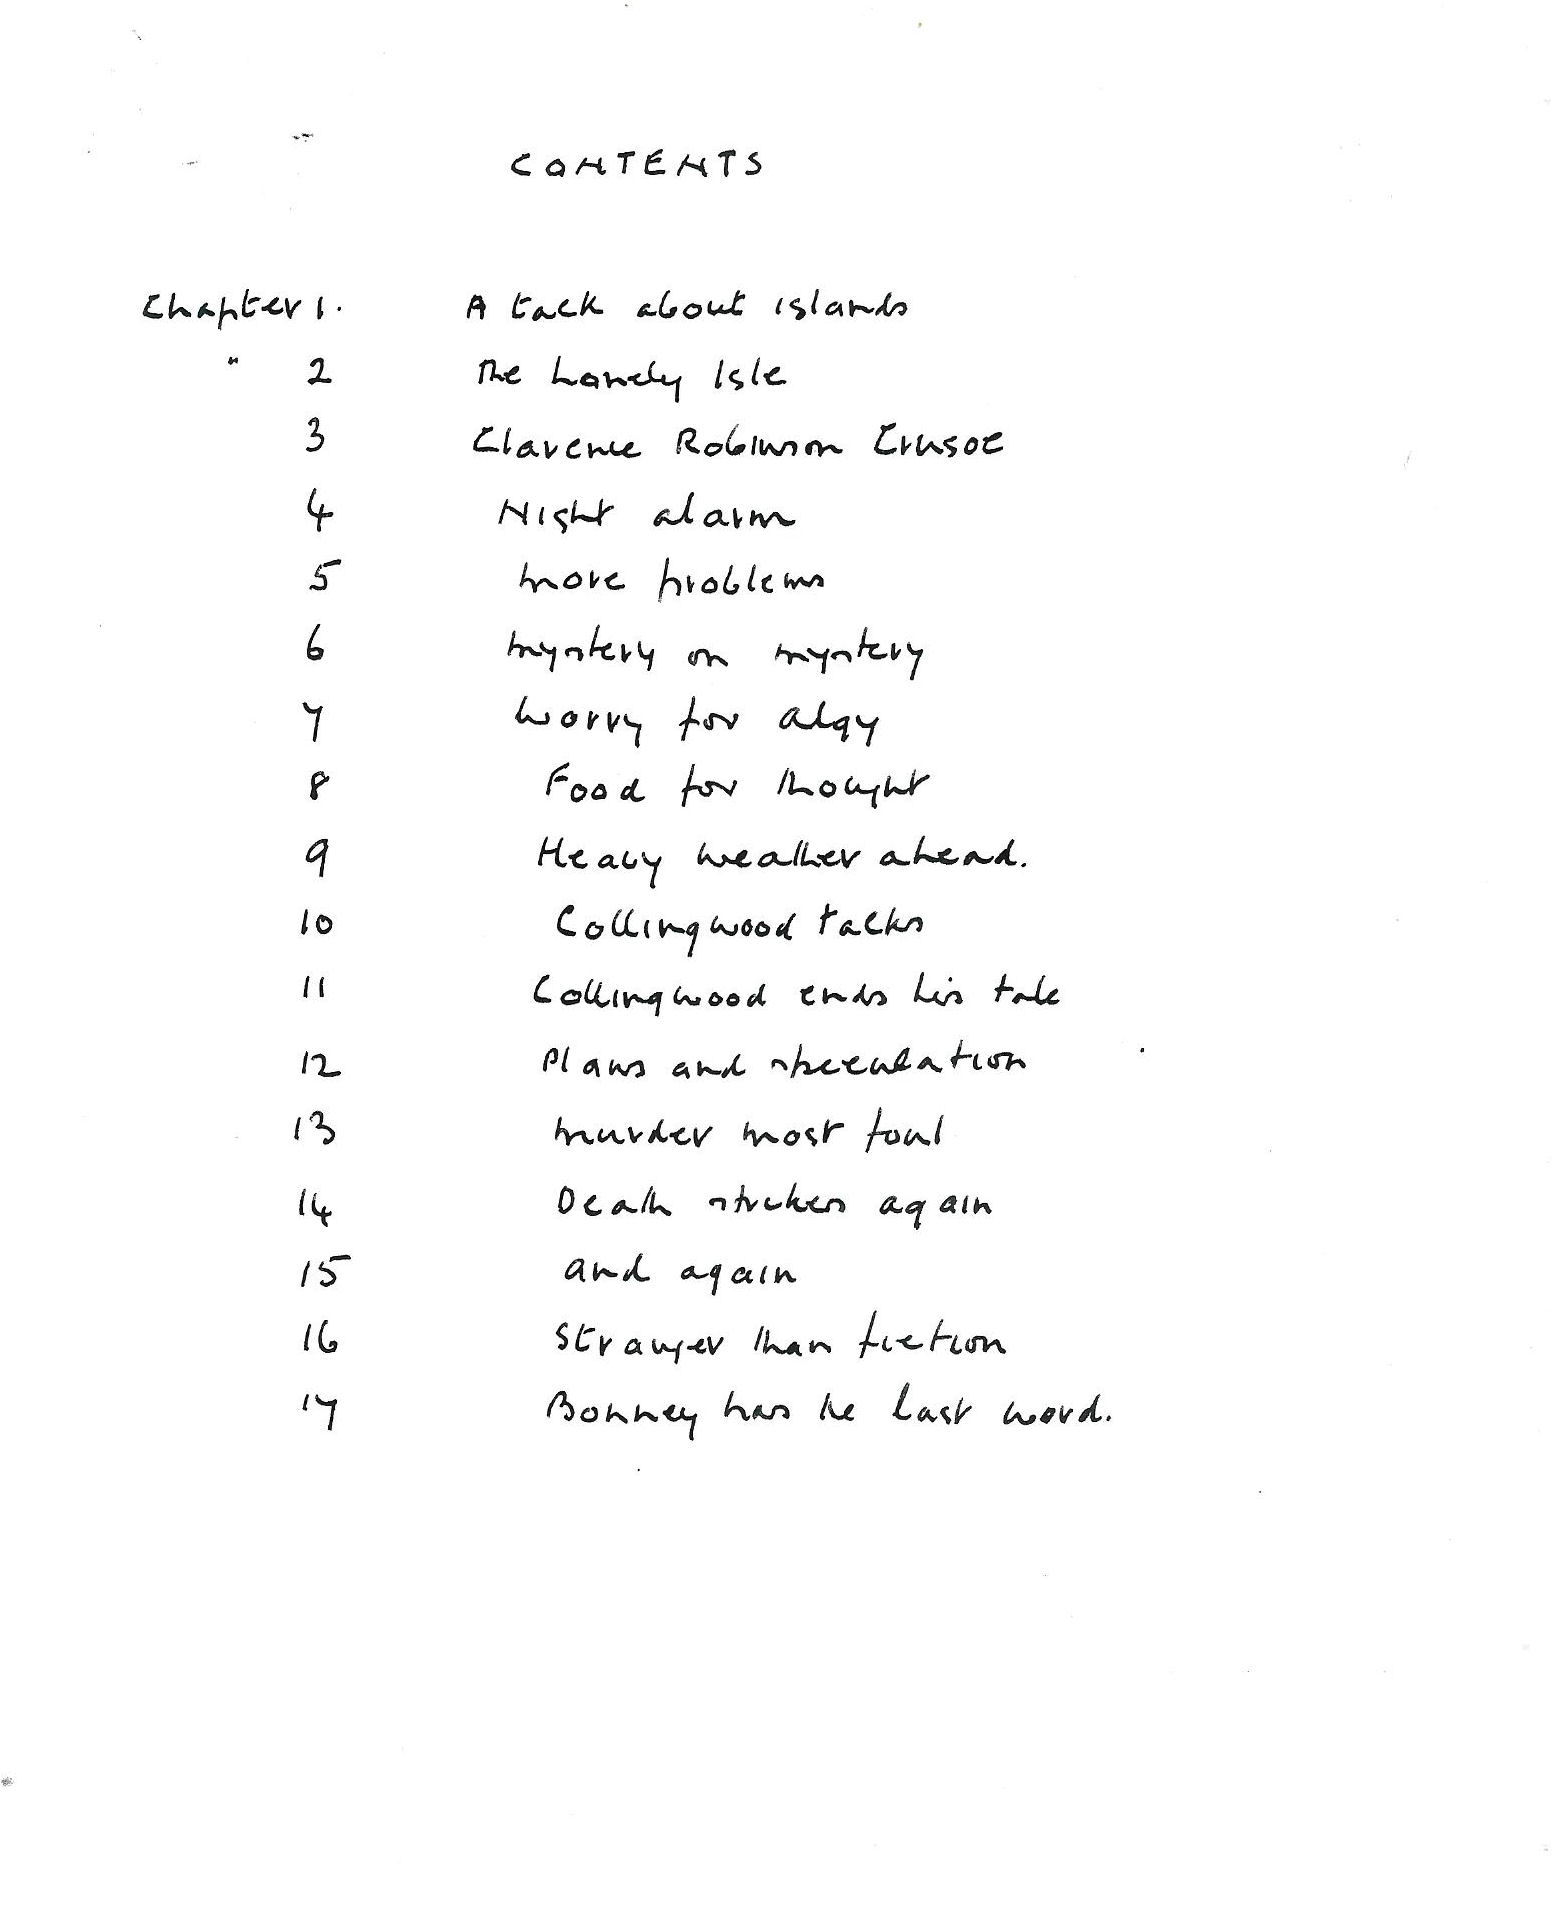 CONTENTS
Chapter 1. A talk about islands
" 2 The Lonely Isle
3 Clarence Robinson Crusoe
4 Night alarm
5 More problems
6 Mystery on mystery
7 Worry for Algy
8 Food for thought
9 Heavy weather ahead.
10 Collingwood talks
11 Collingwood ends his tale
12 Plans and speculation
13 Murder most foul
14 Death strikes again
15 and again
16 Stranger than fiction
17 Bonney has the last word.